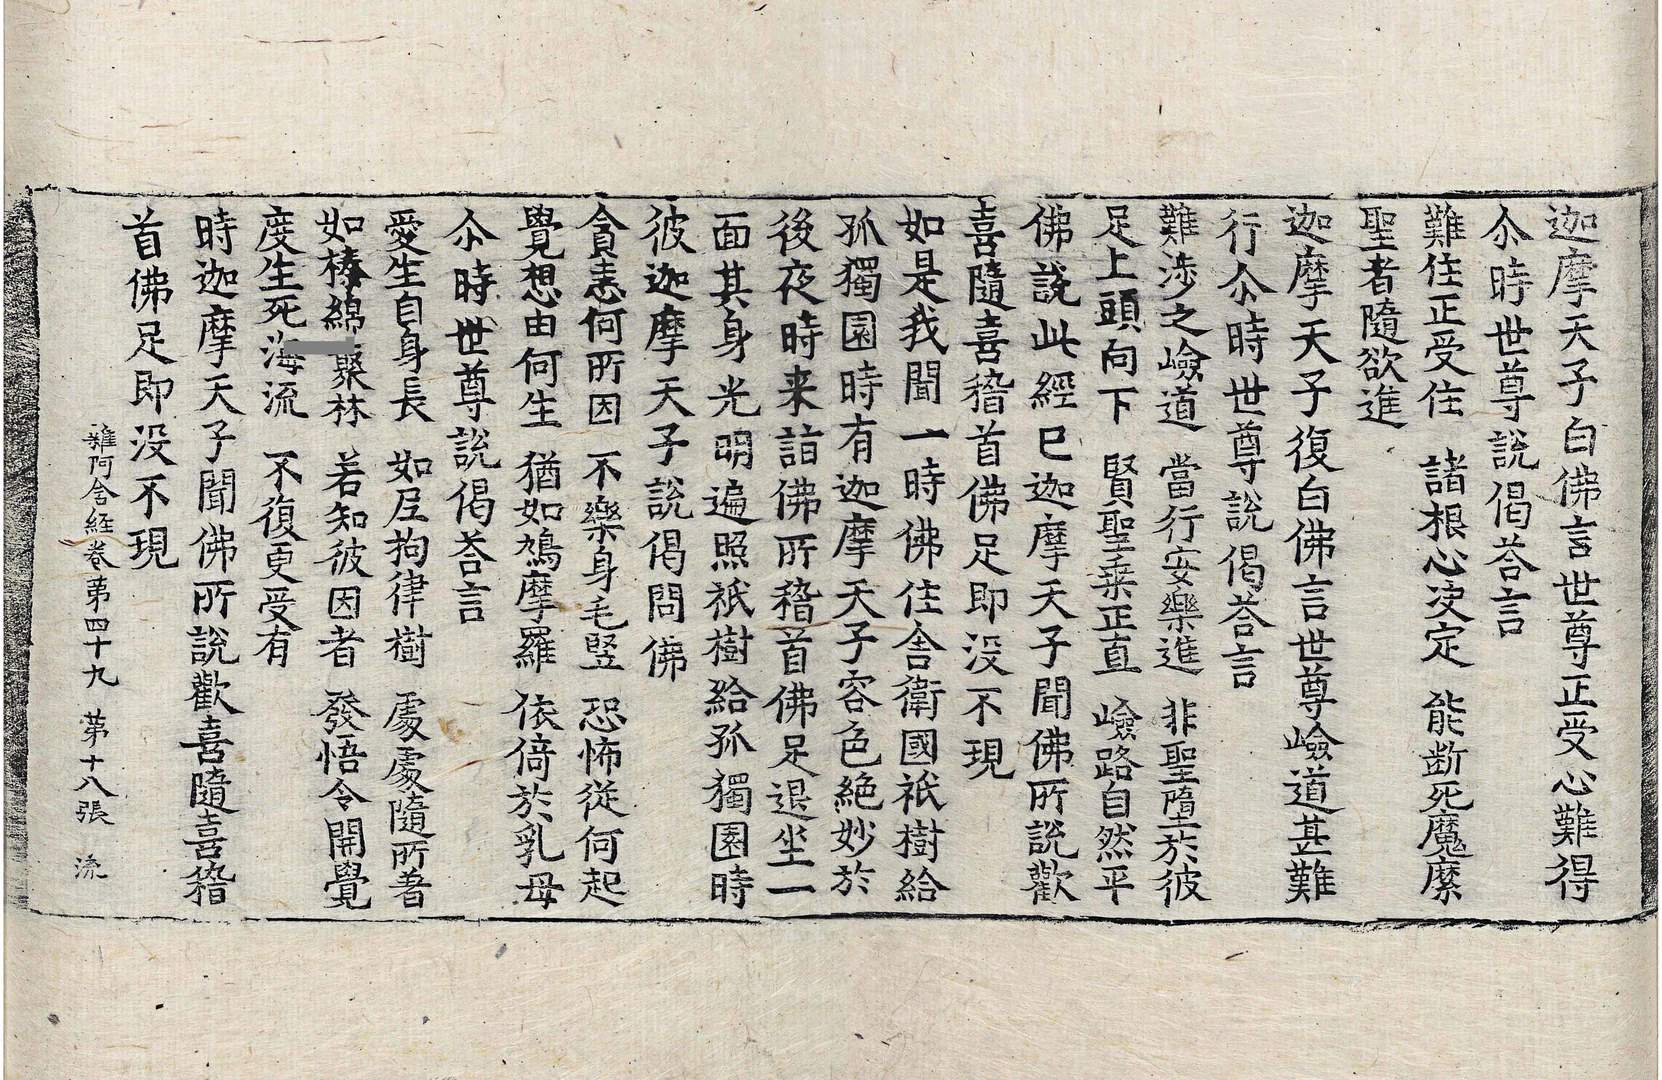 迦摩天子白佛言世尊正受心難得
尒時世尊說偈荅言
難住正受住 諸根心决定 能断死魔縻
聖者隨欲進
迦摩天子復白佛言世尊嶮道甚難
行尒時世尊說偈荅言
難涉之嶮道 當行安樂進 非聖墮於彼
足上頭向下 賢聖乗正直 嶮路自然平
佛說此經已迦摩天子聞佛所說歡
喜隨喜稽首佛足即没不現
如是我聞一時佛住舍衛國祇樹給
孤獨園時有迦摩天子容色絶妙於
後夜時来詣佛所稽首佛足退坐一
面其身光明遍照祇樹給孤獨園時
彼迦摩天子說偈問佛
貪恚何所因 不樂身毛竪 恐怖從何起
覺想由何生 猶如鳩摩羅 依倚於乳母
尒時世尊說偈荅言
愛生自身長 如尼拘律樹 處處隨所著
如榛綿聚林 若知彼因者 發悟令開覺
度生死海流 不復更受有
時迦摩天子聞佛所說歡喜隨喜稽
首佛足即没不現
雜阿含経卷第四十九 第十八張 流